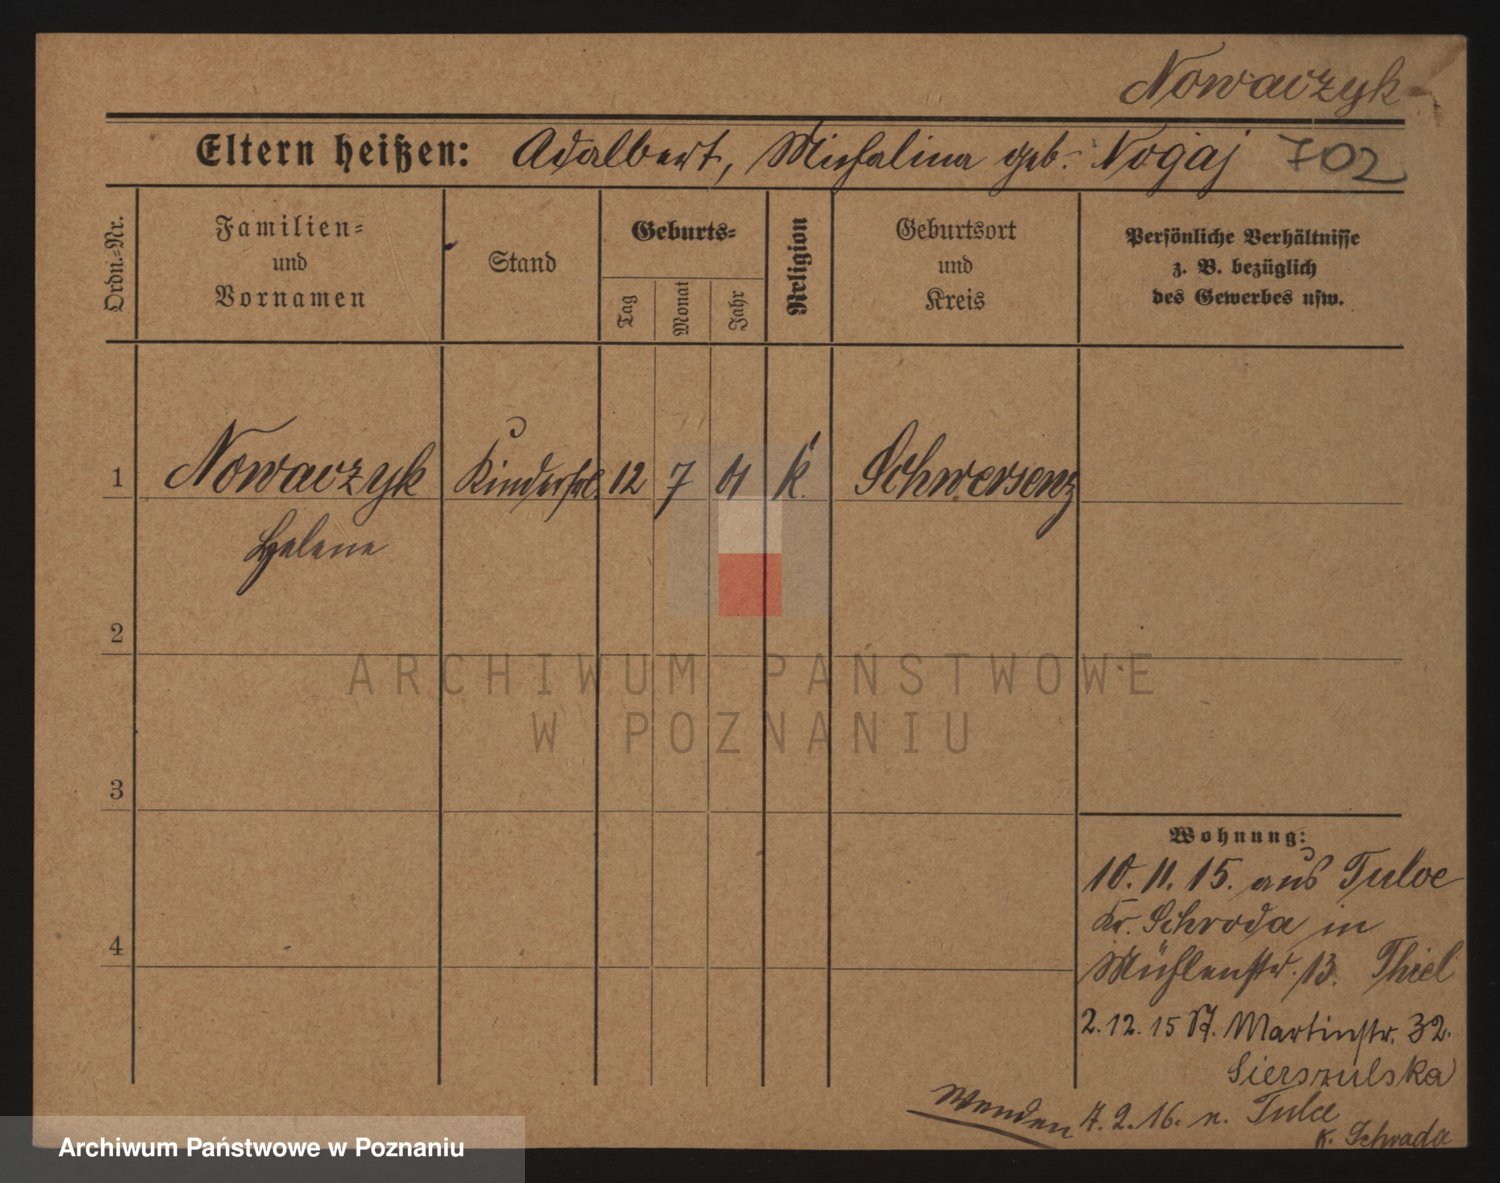 Nowaczyk
Eltern heißen: Adalbert, Michalina geb. Nogaj 702
Ordn.-Nr.
Familien-
und
Vornamen
Stand
Geburts-
Tag
Monat
Jahr
Religion
Geburtsort
und
Kreis
Persönliche Verhältnisse
z. B. bezüglich
des Gewerbes usw.
1 Nowaczyk Kinderfrl. 12 7 01 k. Schwersenz
Helene
2
3
4
Wohnung:
10. 11. 15. aus Tulce
Kr. Schroda in
Mühlenstr. 13. Thiel
2. 12. 15 St. Martinstr. 32.
Sierszulska
Wenden 7. 2. 16. n. Tulce
K. Schroda
ARCHIWUM PAŃSTWOWE
W POZNANIU
Archiwum Państwowe w Poznaniu